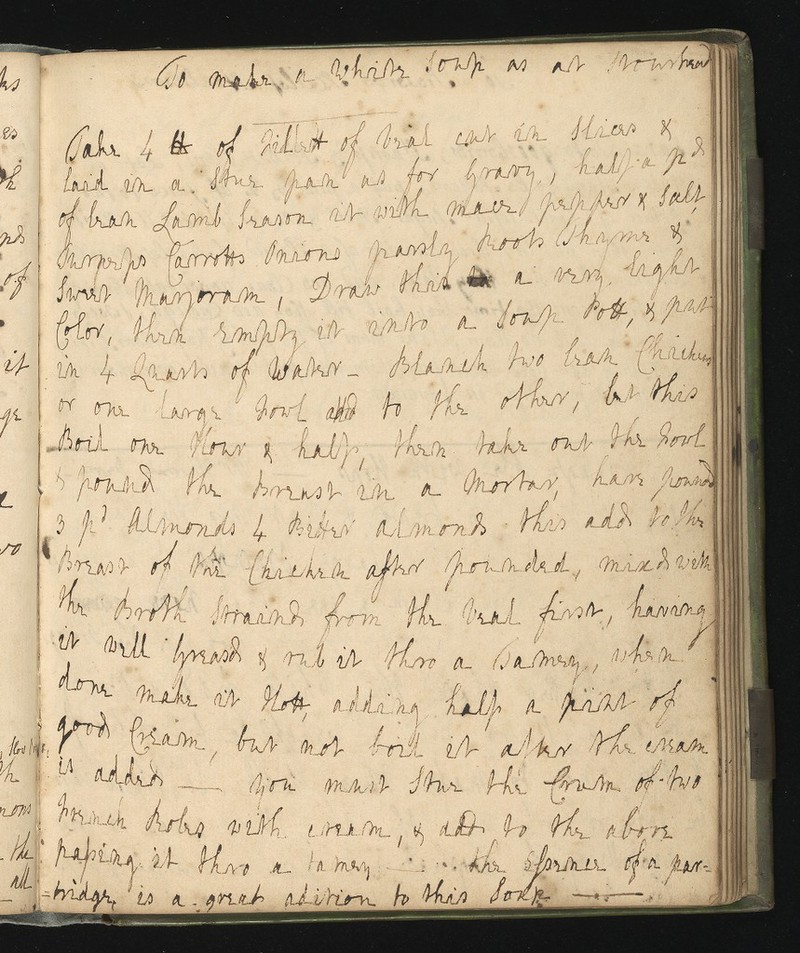 To make a White Soup as at Stourhead
Take 4 lb of Fillett of Veal cut in Slices &
laid in a Stue pan as for Gravy, half a pd
of lean Lamb Season it with mace pepper & Salt
Turneps Carrotts Onions parsly Roots Thyme &
Sweet Marjoram, Draw this to a very light
Color, then Empty it into a Soup Pott, & put
in 4 Quarts of Water - Blanch two lean Chickens
or one large Fowl add to the other, let this
Boil one Hour & half, then take out the Fowl
& pound the Breast in a Mortar, have pound
3 pd Almonds 4 Bitter almonds this add to the
Breast of the Chicken after pounded, mixd with
the Broth Straind from the Veal first, having
it well Greasd & rub it thro a Tamey, when
done make it Hott, adding half a pint of
good Cream, but not boil it after the cream
is added — you must Stue the Crum of two
French Roles with cream, & add to the above
passing it thro a tamey — the Essence of a par=
=tridge, is a great adition to this Soup —
ks
es
th
nd
of
it
ge
vo
mons
the
all